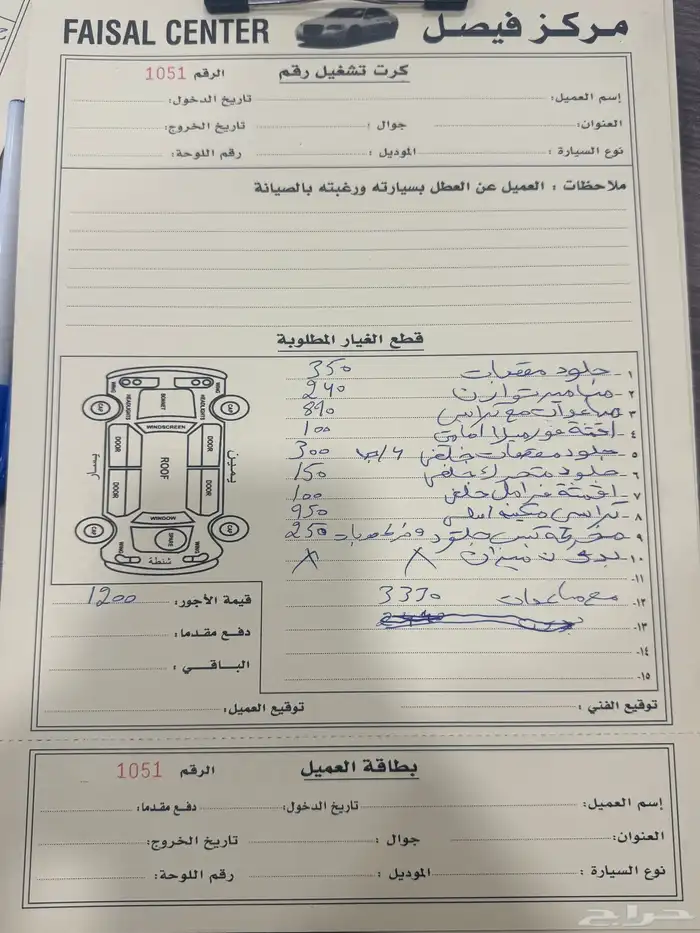 FAISAL CENTER مركز فيصل
كرت تشغيل رقم الرقم 1051
إسم العميل: تاريخ الدخول:
العنوان: جوال : تاريخ الخروج:
نوع السيارة : الموديل : رقم اللوحة:
ملاحظات : العميل عن العطل بسيارته ورغبته بالصيانة
قطع الغيار المطلوبة
١- جلود مقصات 350
٢- مسامير توازن 240
٣- مساعدات مع كراسي 890
٤- اقمشة فورميلا امامي 100
٥- جلود مقصات خلفي 300
٦- جلود متحرك خلفي 150
٧- اقمشة فرامل خلفي 100
٨- كراسي مكينه اصلي 950
٩- مخرطة كبس جلود و فرط 250
١٠- بدون ميزان X X
١١-
١٢- مع مساعدات 3330
١٣-
١٤-
١٥-
WING
HEADLIGHTS
BONNET
HEADLIGHTS
WING
CAP
CAP
WINDSCREEN
DOOR
DOOR
ROOF
DOOR
DOOR
يسار
يمين
WINDOW
CAP
CAP
SPARE
WING
WING
شنطة
قيمة الأجور: 1200
دفع مقدما:
الباقي :
توقيع الفني : توقيع العميل:
بطاقة العميل الرقم 1051
إسم العميل: تاريخ الدخول: دفع مقدما:
العنوان: جوال : تاريخ الخروج:
نوع السيارة : الموديل : رقم اللوحة:
حراج